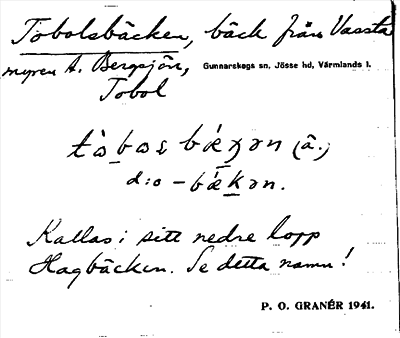 Tobolsbäcken, bäck från Vassta
myren t. Bergsjön, Gunnarskogs sn, Jösse hd, Värmlands l.
Tobol
(ā.)
d:o –
Kallas i sitt nedre lopp
Hagbäcken. Se detta namn!
P. O. GRANÉR 1941.